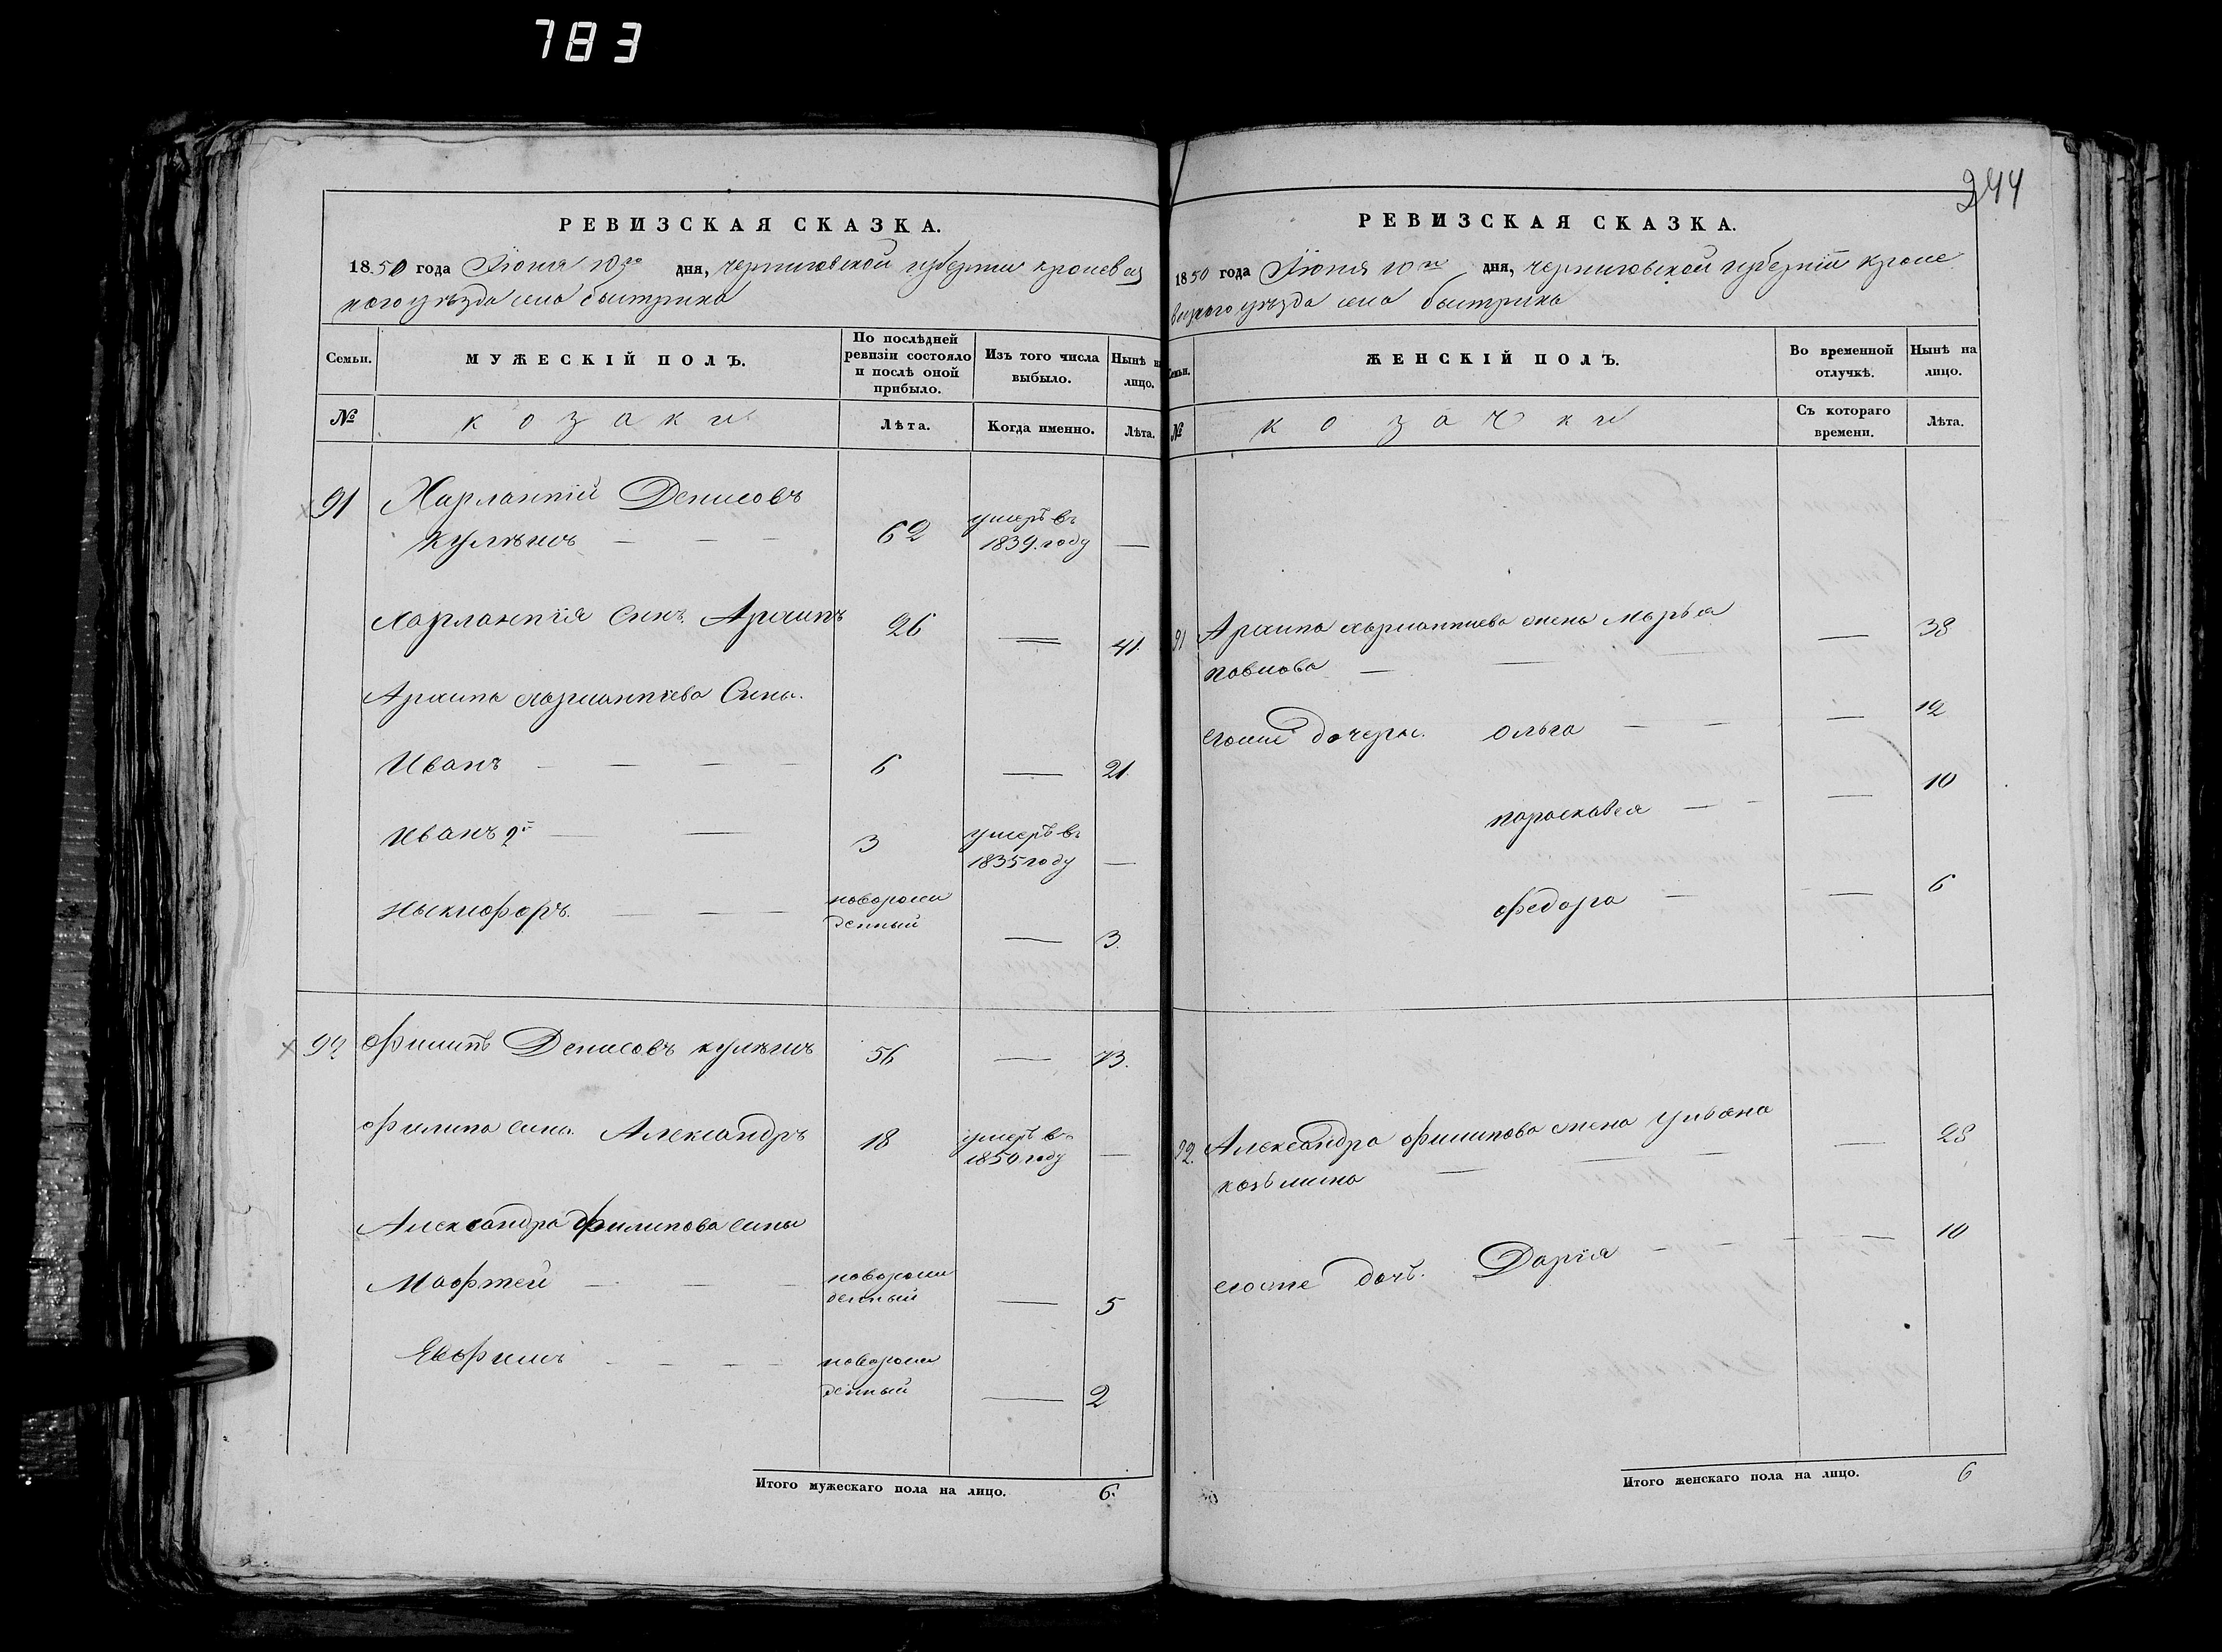 783
РЕВИЗСКАЯ СКАЗКА.
1850 года Іюня 10го дня, черниговской губерніи кролевец
кого уѣзда села быстрика
Семьи. МУЖЕСКІЙ ПОЛЪ. По послѣдней ревизіи состояло и послѣ оной прибыло. Изъ того числа выбыло. Нынѣ на лицо.
№ козаки Лѣта. Когда именно. Лѣта.
91 Харлампій Денисовъ
Кулѣшъ 62 умеръ въ 1839. году
Харлампія Синъ Архипъ 26 41.
Архипа Харлампіева Сины.
Иванъ 6 21.
Иванъ 2й 3 умеръ въ 1835 году
Ныкифоръ. новорожденный 3.
92 Филипъ Денисовъ кулѣшъ 56 73.
Филипа сины. Александръ 18 умеръ въ 1850 году
Александра Филипова сины
Мафтей новорожденный 5
Евфимъ новорожденный 2
Итого мужескаго пола на лицо. 6.
244
РЕВИЗСКАЯ СКАЗКА.
1850 года Іюня 10го дня, черниговской губерніи кроле
вецкого уѣзда села быстрика
Семьи. ЖЕНСКІЙ ПОЛЪ. Во временной отлучкѣ. Нынѣ на лицо.
№ козачки Съ котораго времени. Лѣта.
91 Архипа харлампиева жена Марья 38
Павлова
Егоже дочери. Ольга 12
параскавея 10
федора 6
92. Александра Филипова жена Ульяна 28
козьмина
егоже дочь. Дарія 10
Итого женскаго пола на лицо. 6